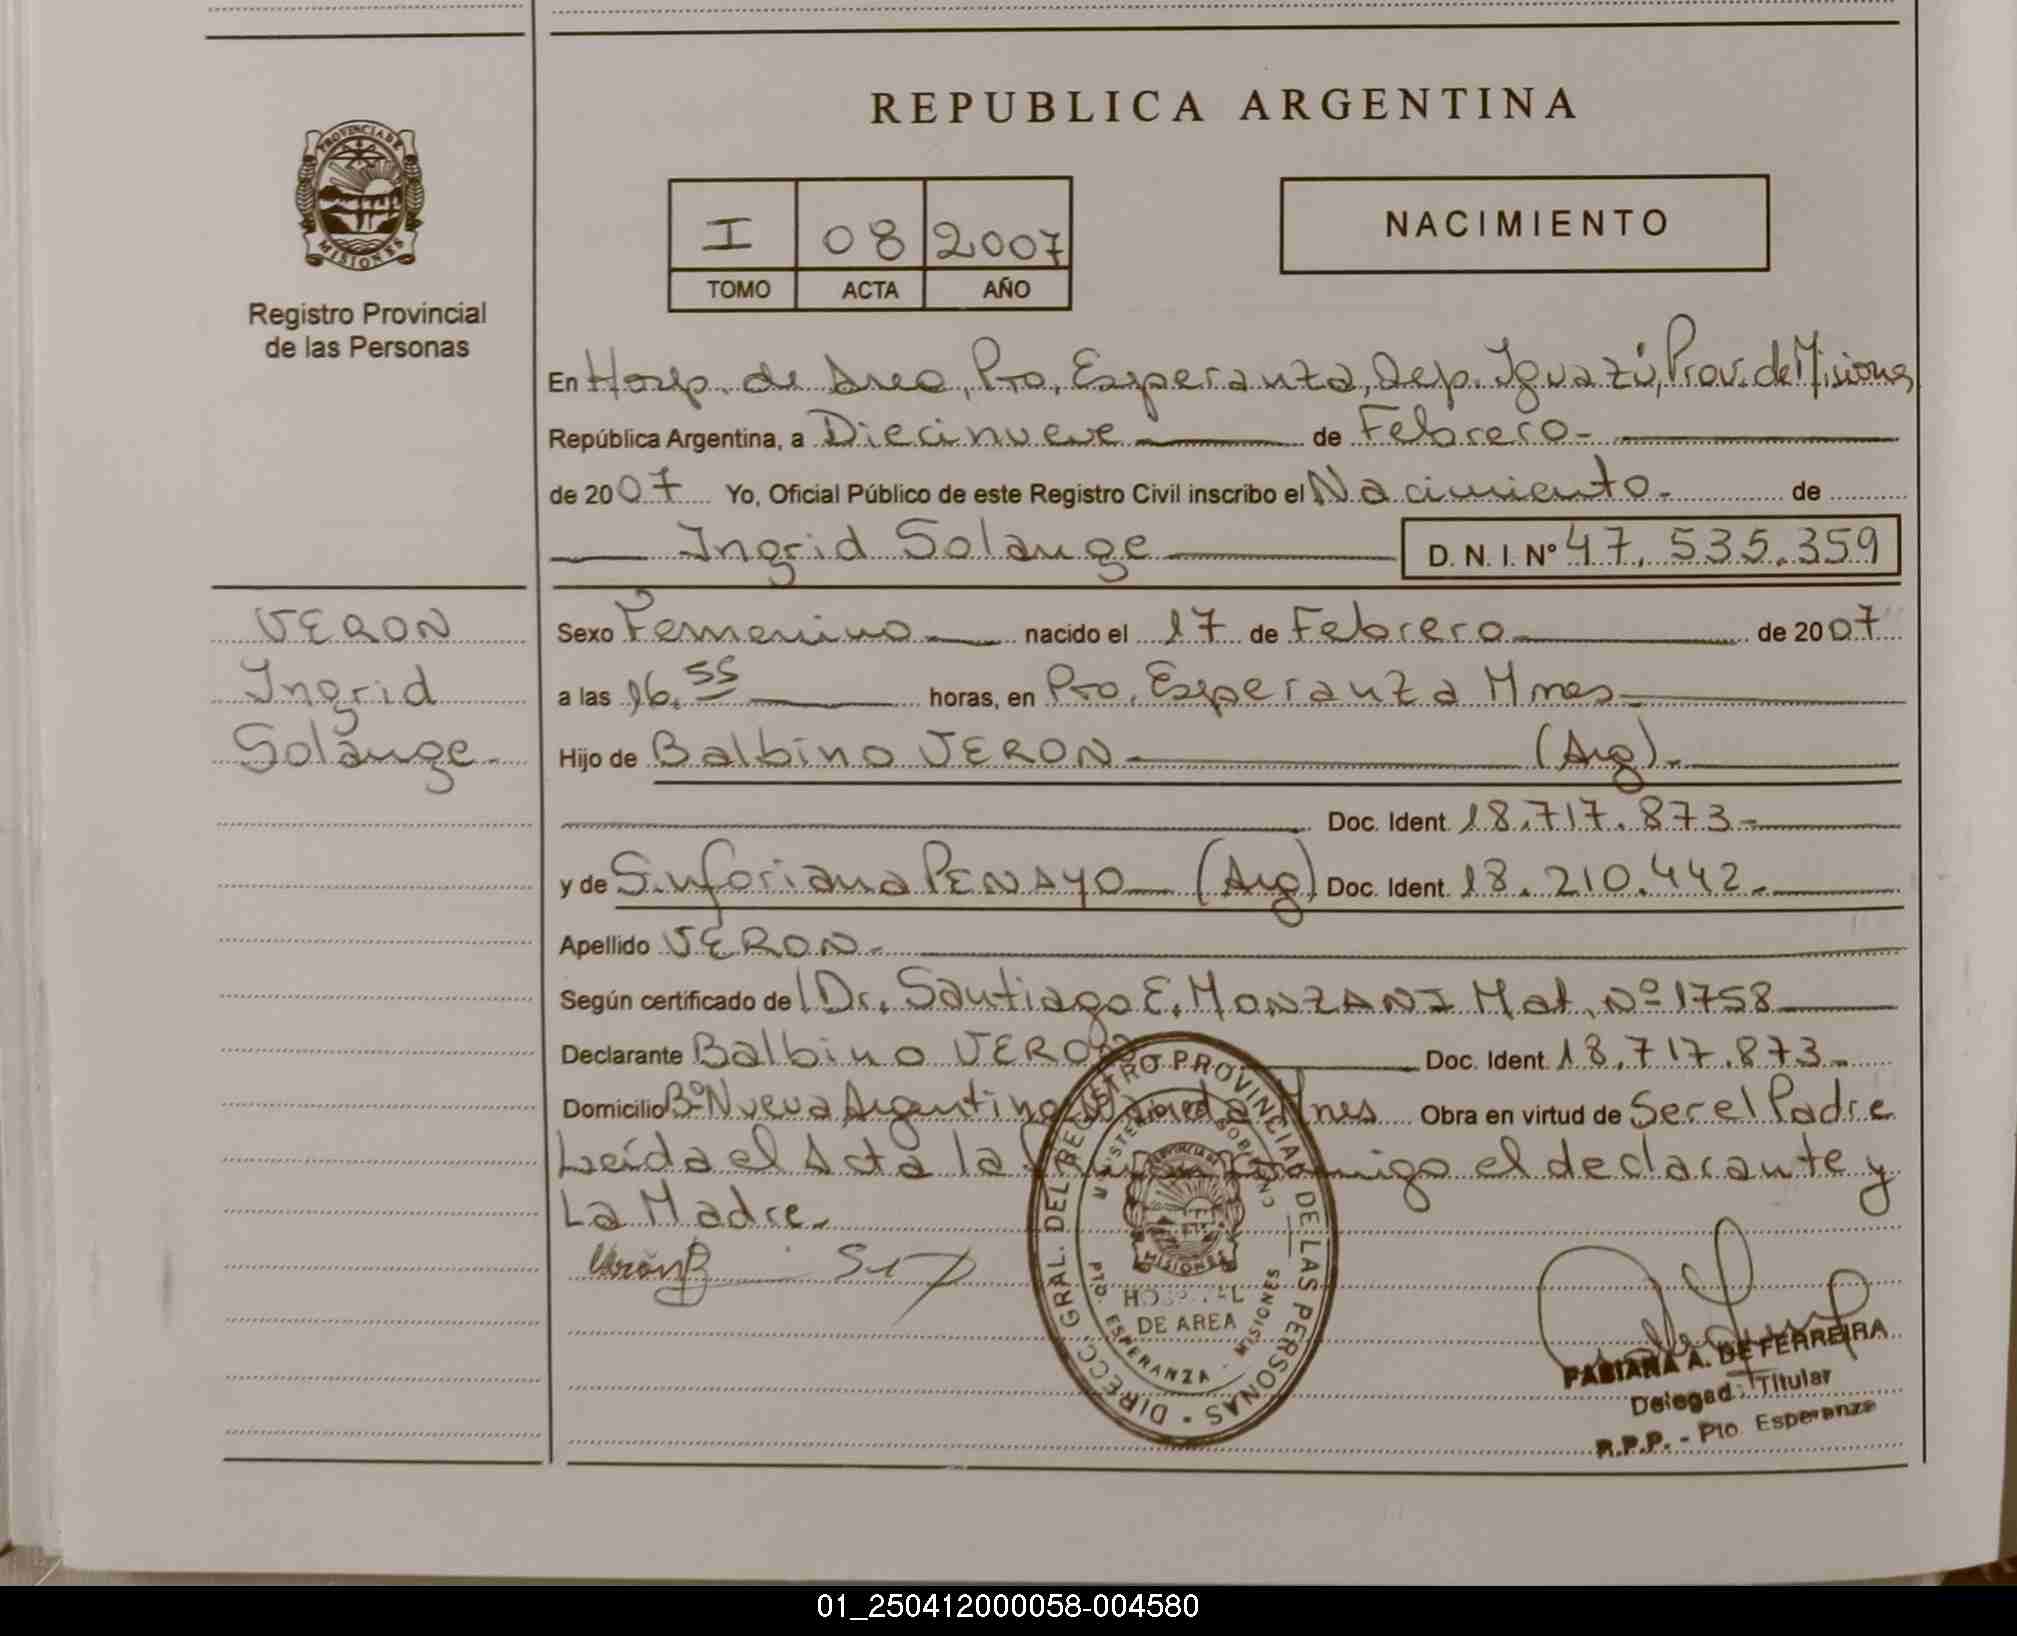 REPUBLICA ARGENTINA
PROVINCIA DE
MISIONES
Registro Provincial
de las Personas
I 08 2007
TOMO ACTA AÑO
NACIMIENTO
En Hosp. de Area, Pto. Esperanza, Dep. Iguazú, Prov. de Misiones
República Argentina, a Diecinueve de Febrero-
de 2007 Yo, Oficial Público de este Registro Civil inscribo el Nacimiento- de
Ingrid Solange D. N. I. Nº 47.535.359
VERON
Ingrid
Solange-
Sexo Femenino nacido el 17 de Febrero de 2007
a las 16.55 horas, en Pto. Esperanza Mnes
Hijo de Balbino VERON (Arg).
Doc. Ident. 18.717.873-
y de Sinforiana PENAYO (Arg) Doc. Ident. 18.210.442-
Apellido VERON-
Según certificado del Dr. Santiago E. MONZANI Mat. Nº 1758
Declarante Balbino VERON Doc. Ident. 18.717.873-
Domicilio Bº Nueva Argentina Wanda Mnes Obra en virtud de Ser el Padre
Leída el Acta la firman conmigo el declarante y
La Madre-
Verón B
DIRECC. GRAL. DEL REGISTRO PROVINCIAL DE LAS PERSONAS
MISIONES
HOSPITAL
DE AREA
PTO. ESPERANZA - MISIONES
FABIANA A. DE FERREIRA
Delegada Titular
R.P.P. - Pto Esperanza
01_250412000058-004580